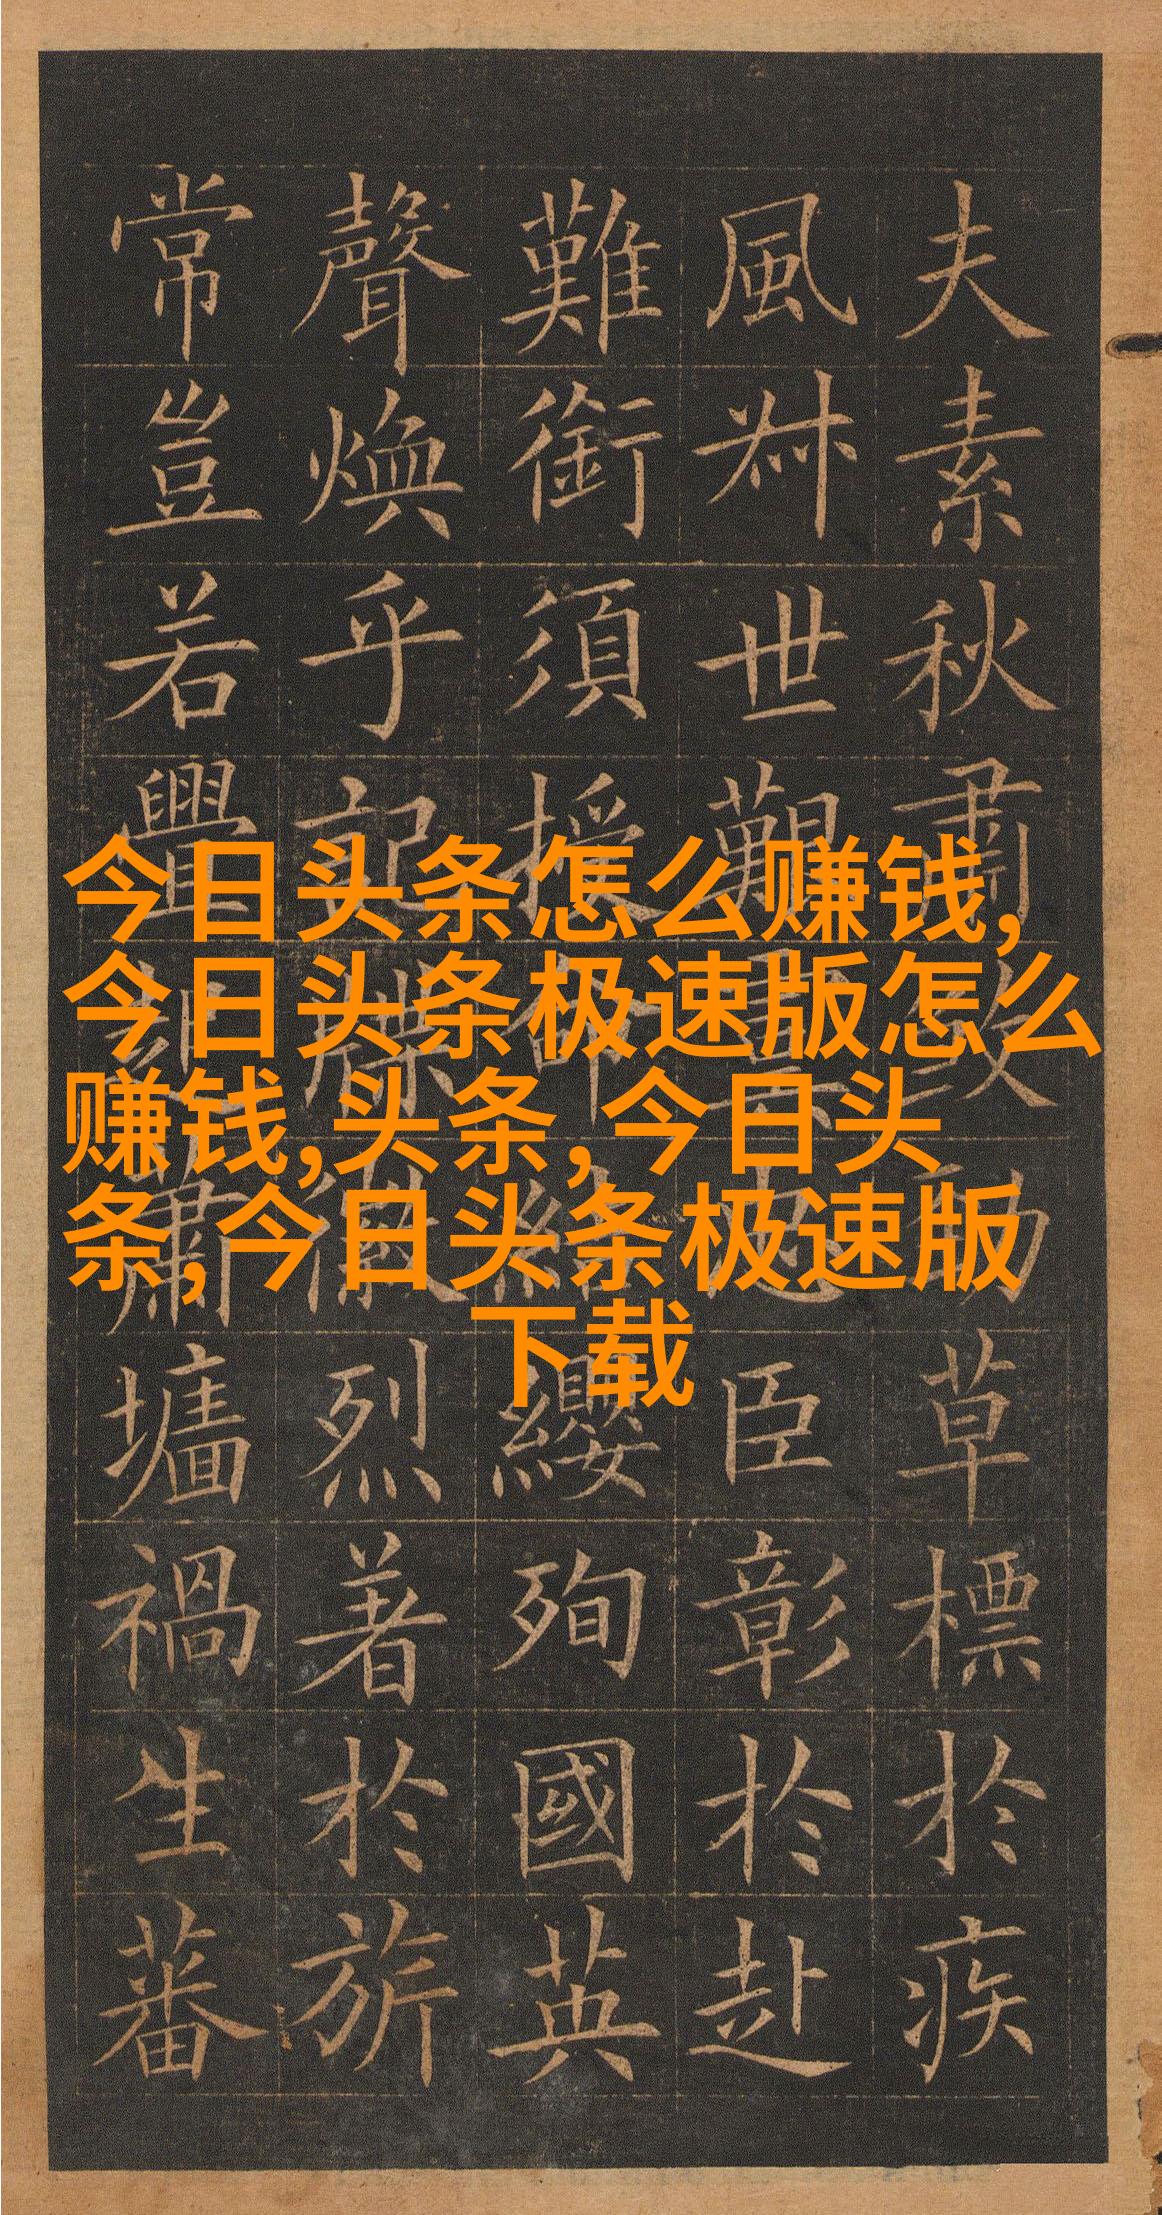 今日头条怎么赚钱,
今日头条极速版怎么
赚钱,头条,今日头
条,今日头条极速版
下载
夫素秋肅勁草標於疾
風世艱忠臣彰於赴
難銜須授命結纓殉國英
聲煥乎記牒徽烈著於旂
常豈若蕭墻禍生蕃